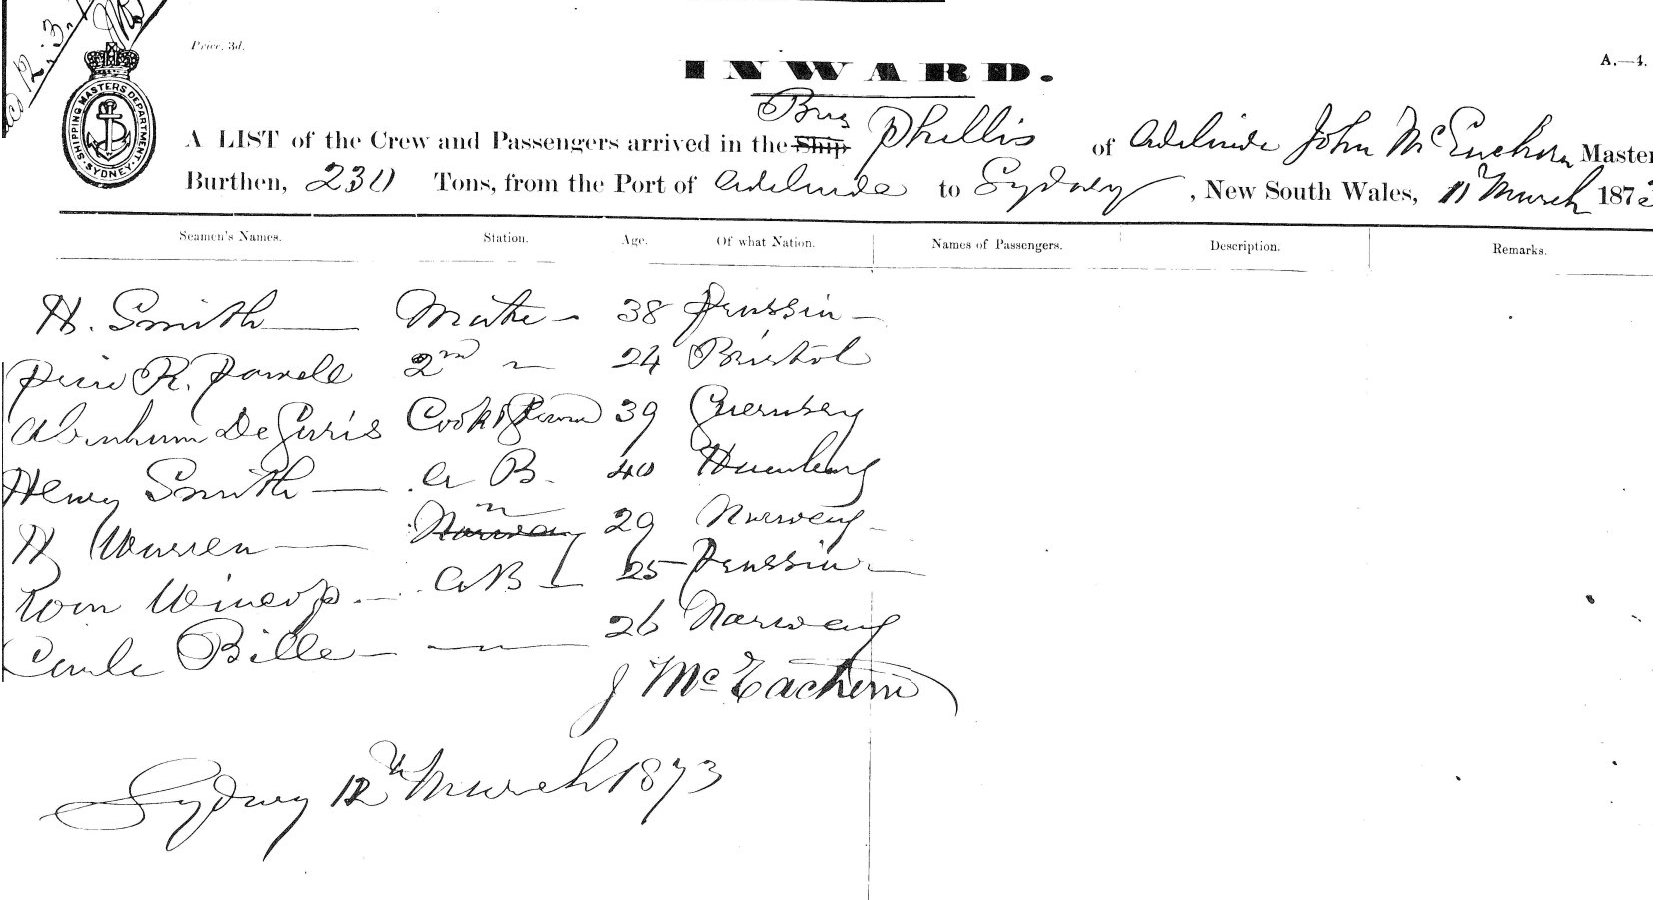 12.3.
Price, 3d.
INWARD.
A.—4.
SHIPPING MASTERS DEPARTMENT SYDNEY
Brig
A LIST of the Crew and Passengers arrived in the Ship Phillis of Adelaide John McEachern Master
Burthen, 230 Tons, from the Port of Adelaide to Sydney, New South Wales, 11 March 1873
Seamen's Names. Station. Age. Of what Nation. Names of Passengers. Description. Remarks.
H. Smith Mate 38 Prussia
R. Powell 2nd 24 Bristol
Abraham De Garis Cook & Steward 39 Guernsey
Henry Smith A B. 40 Hamburg
H Warren Norway 29 Norway
Wincop A B 25 Prussia
Carle Bille 26 Norway
J McEachern
Sydney 12th March 1873